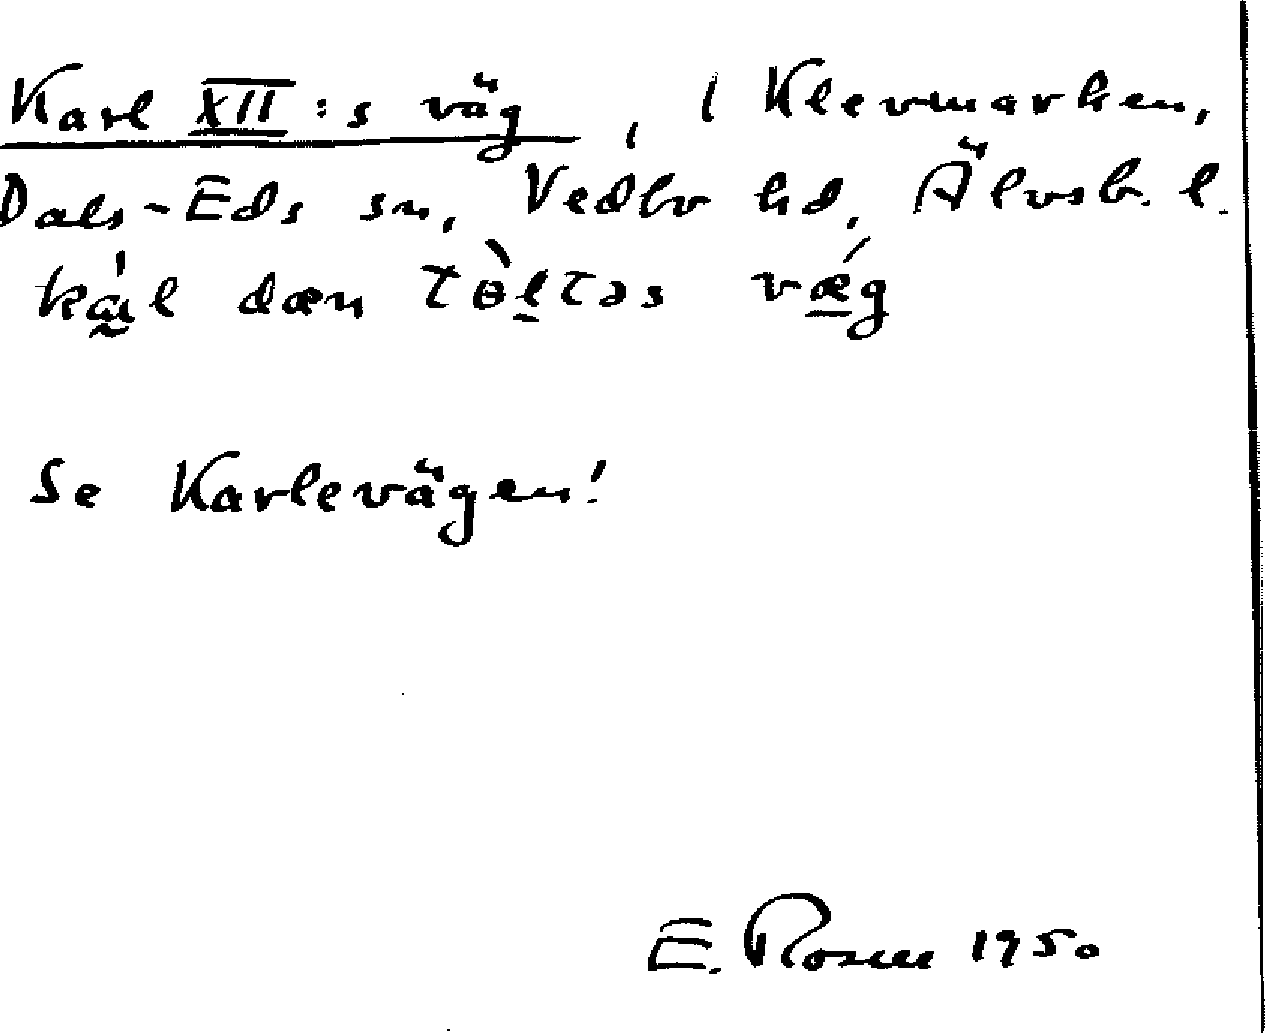 Karl XII:s väg, i Klevmarken,
Dals-Eds sn, Vedbo hd, Älvsb. l.
ká̰l dæn tɵ̀l̠təs vǽ̠g
Se Karlevägen!
E. Rosen 1950